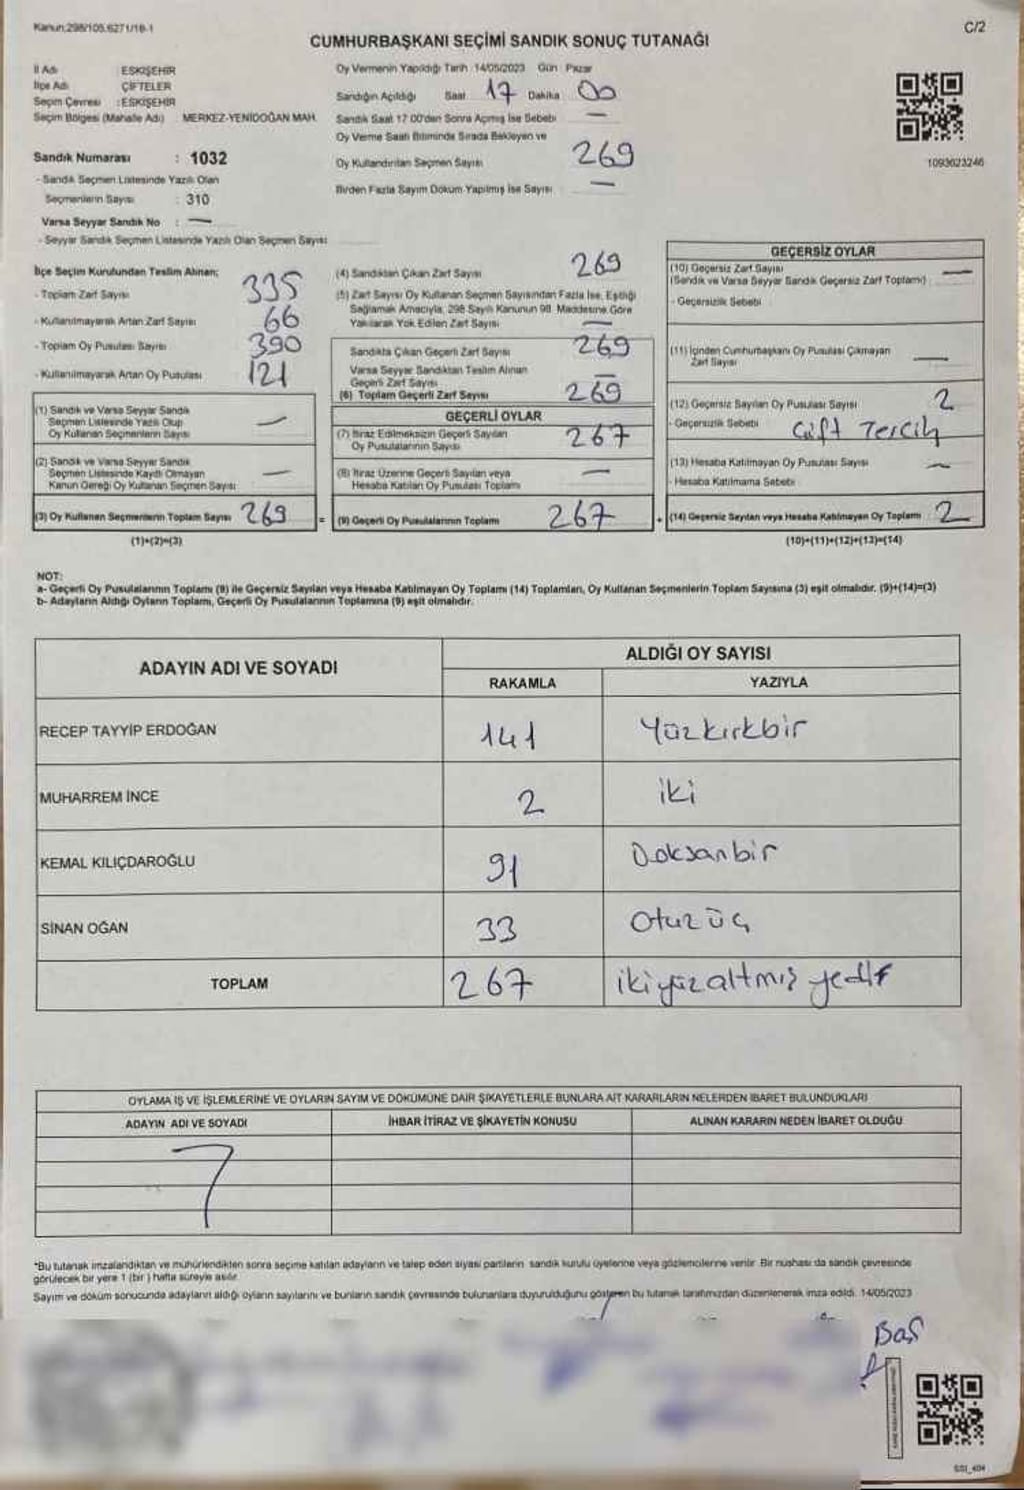 Kanun:298/105,6271/18-1
C/2
CUMHURBAŞKANI SEÇİMİ SANDIK SONUÇ TUTANAĞI
İl Adı : ESKİŞEHİR
İlçe Adı : ÇİFTELER
Seçim Çevresi : ESKİŞEHİR
Seçim Bölgesi (Mahalle Adı) MERKEZ-YENİDOĞAN MAH.
Sandık Numarası : 1032
- Sandık Seçmen Listesinde Yazılı Olan
Seçmenlerin Sayısı : 310
Varsa Seyyar Sandık No : —
- Seyyar Sandık Seçmen Listesinde Yazılı Olan Seçmen Sayısı
Oy Vermenin Yapıldığı Tarih :14/05/2023 Gün : Pazar
Sandığın Açıldığı Saat 17 Dakika 00
Sandık Saat 17.00'den Sonra Açmış İse Sebebi —
Oy Verme Saati Bitiminde Sırada Bekleyen ve
Oy Kullandırılan Seçmen Sayısı 269
Birden Fazla Sayım Döküm Yapılmış İse Sayısı —
1093623246
İlçe Seçim Kurulundan Teslim Alınan;
- Toplam Zarf Sayısı 335
- Kullanılmayarak Artan Zarf Sayısı 66
- Toplam Oy Pusulası Sayısı 390
- Kullanılmayarak Artan Oy Pusulası 121
(1) Sandık ve Varsa Seyyar Sandık
Seçmen Listesinde Yazılı Olup
Oy Kullanan Seçmenlerin Sayısı —
(2) Sandık ve Varsa Seyyar Sandık
Seçmen Listesinde Kaydı Olmayan
Kanun Gereği Oy Kullanan Seçmen Sayısı —
(3) Oy Kullanan Seçmenlerin Toplam Sayısı 269 =
(1)+(2)=(3)
(4) Sandıktan Çıkan Zarf Sayısı 269
(5) Zarf Sayısı Oy Kullanan Seçmen Sayısından Fazla İse, Eşitliği
Sağlamak Amacıyla, 298 Sayılı Kanunun 98. Maddesine Göre
Yakılarak Yok Edilen Zarf Sayısı —
Sandıkta Çıkan Geçerli Zarf Sayısı 269
Varsa Seyyar Sandıktan Teslim Alınan
Geçerli Zarf Sayısı —
(6) Toplam Geçerli Zarf Sayısı 269
GEÇERLİ OYLAR
(7) İtiraz Edilmeksizin Geçerli Sayılan
Oy Pusulalarının Sayısı 267
(8) İtiraz Üzerine Geçerli Sayılan veya
Hesaba Katılan Oy Pusulası Toplamı —
(9) Geçerli Oy Pusulalarının Toplamı 267 +
GEÇERSİZ OYLAR
(10) Geçersiz Zarf Sayısı —
(Sandık ve Varsa Seyyar Sandık Geçersiz Zarf Toplamı)
- Geçersizlik Sebebi
(11) İçinden Cumhurbaşkanı Oy Pusulası Çıkmayan
Zarf Sayısı —
(12) Geçersiz Sayılan Oy Pusulası Sayısı 2
- Geçersizlik Sebebi Çift Tercih
(13) Hesaba Katılmayan Oy Pusulası Sayısı —
- Hesaba Katılmama Sebebi
(14) Geçersiz Sayılan veya Hesaba Katılmayan Oy Toplamı 2
(10)+(11)+(12)+(13)=(14)
NOT:
a- Geçerli Oy Pusulalarının Toplamı (9) ile Geçersiz Sayılan veya Hesaba Katılmayan Oy Toplamı (14) Toplamları, Oy Kullanan Seçmenlerin Toplam Sayısına (3) eşit olmalıdır. (9)+(14)=(3)
b- Adayların Aldığı Oyların Toplamı, Geçerli Oy Pusulalarının Toplamına (9) eşit olmalıdır.
ADAYIN ADI VE SOYADI ALDIĞI OY SAYISI
RAKAMLA YAZIYLA
RECEP TAYYİP ERDOĞAN 141 Yüzkırkbir
MUHARREM İNCE 2 iki
KEMAL KILIÇDAROĞLU 91 Doksanbir
SİNAN OĞAN 33 Otuzüç
TOPLAM 267 ikiyüzaltmış yedi
OYLAMA İŞ VE İŞLEMLERİNE VE OYLARIN SAYIM VE DÖKÜMÜNE DAİR ŞİKAYETLERLE BUNLARA AİT KARARLARIN NELERDEN İBARET BULUNDUKLARI
ADAYIN ADI VE SOYADI İHBAR İTİRAZ VE ŞİKAYETİN KONUSU ALINAN KARARIN NEDEN İBARET OLDUĞU
*Bu tutanak imzalandıktan ve mühürlendikten sonra seçime katılan adayların ve talep eden siyasi partilerin sandık kurulu üyelerine veya gözlemcilerine verilir. Bir nüshası da sandık çevresinde
görülecek bir yere 1 (bir) hafta süreyle asılır.
Sayım ve döküm sonucunda adayların aldığı oyların sayılarını ve bunların sandık çevresinde bulunanlara duyurulduğunu gösteren bu tutanak tarafımızdan düzenlenerek imza edildi. 14/05/2023